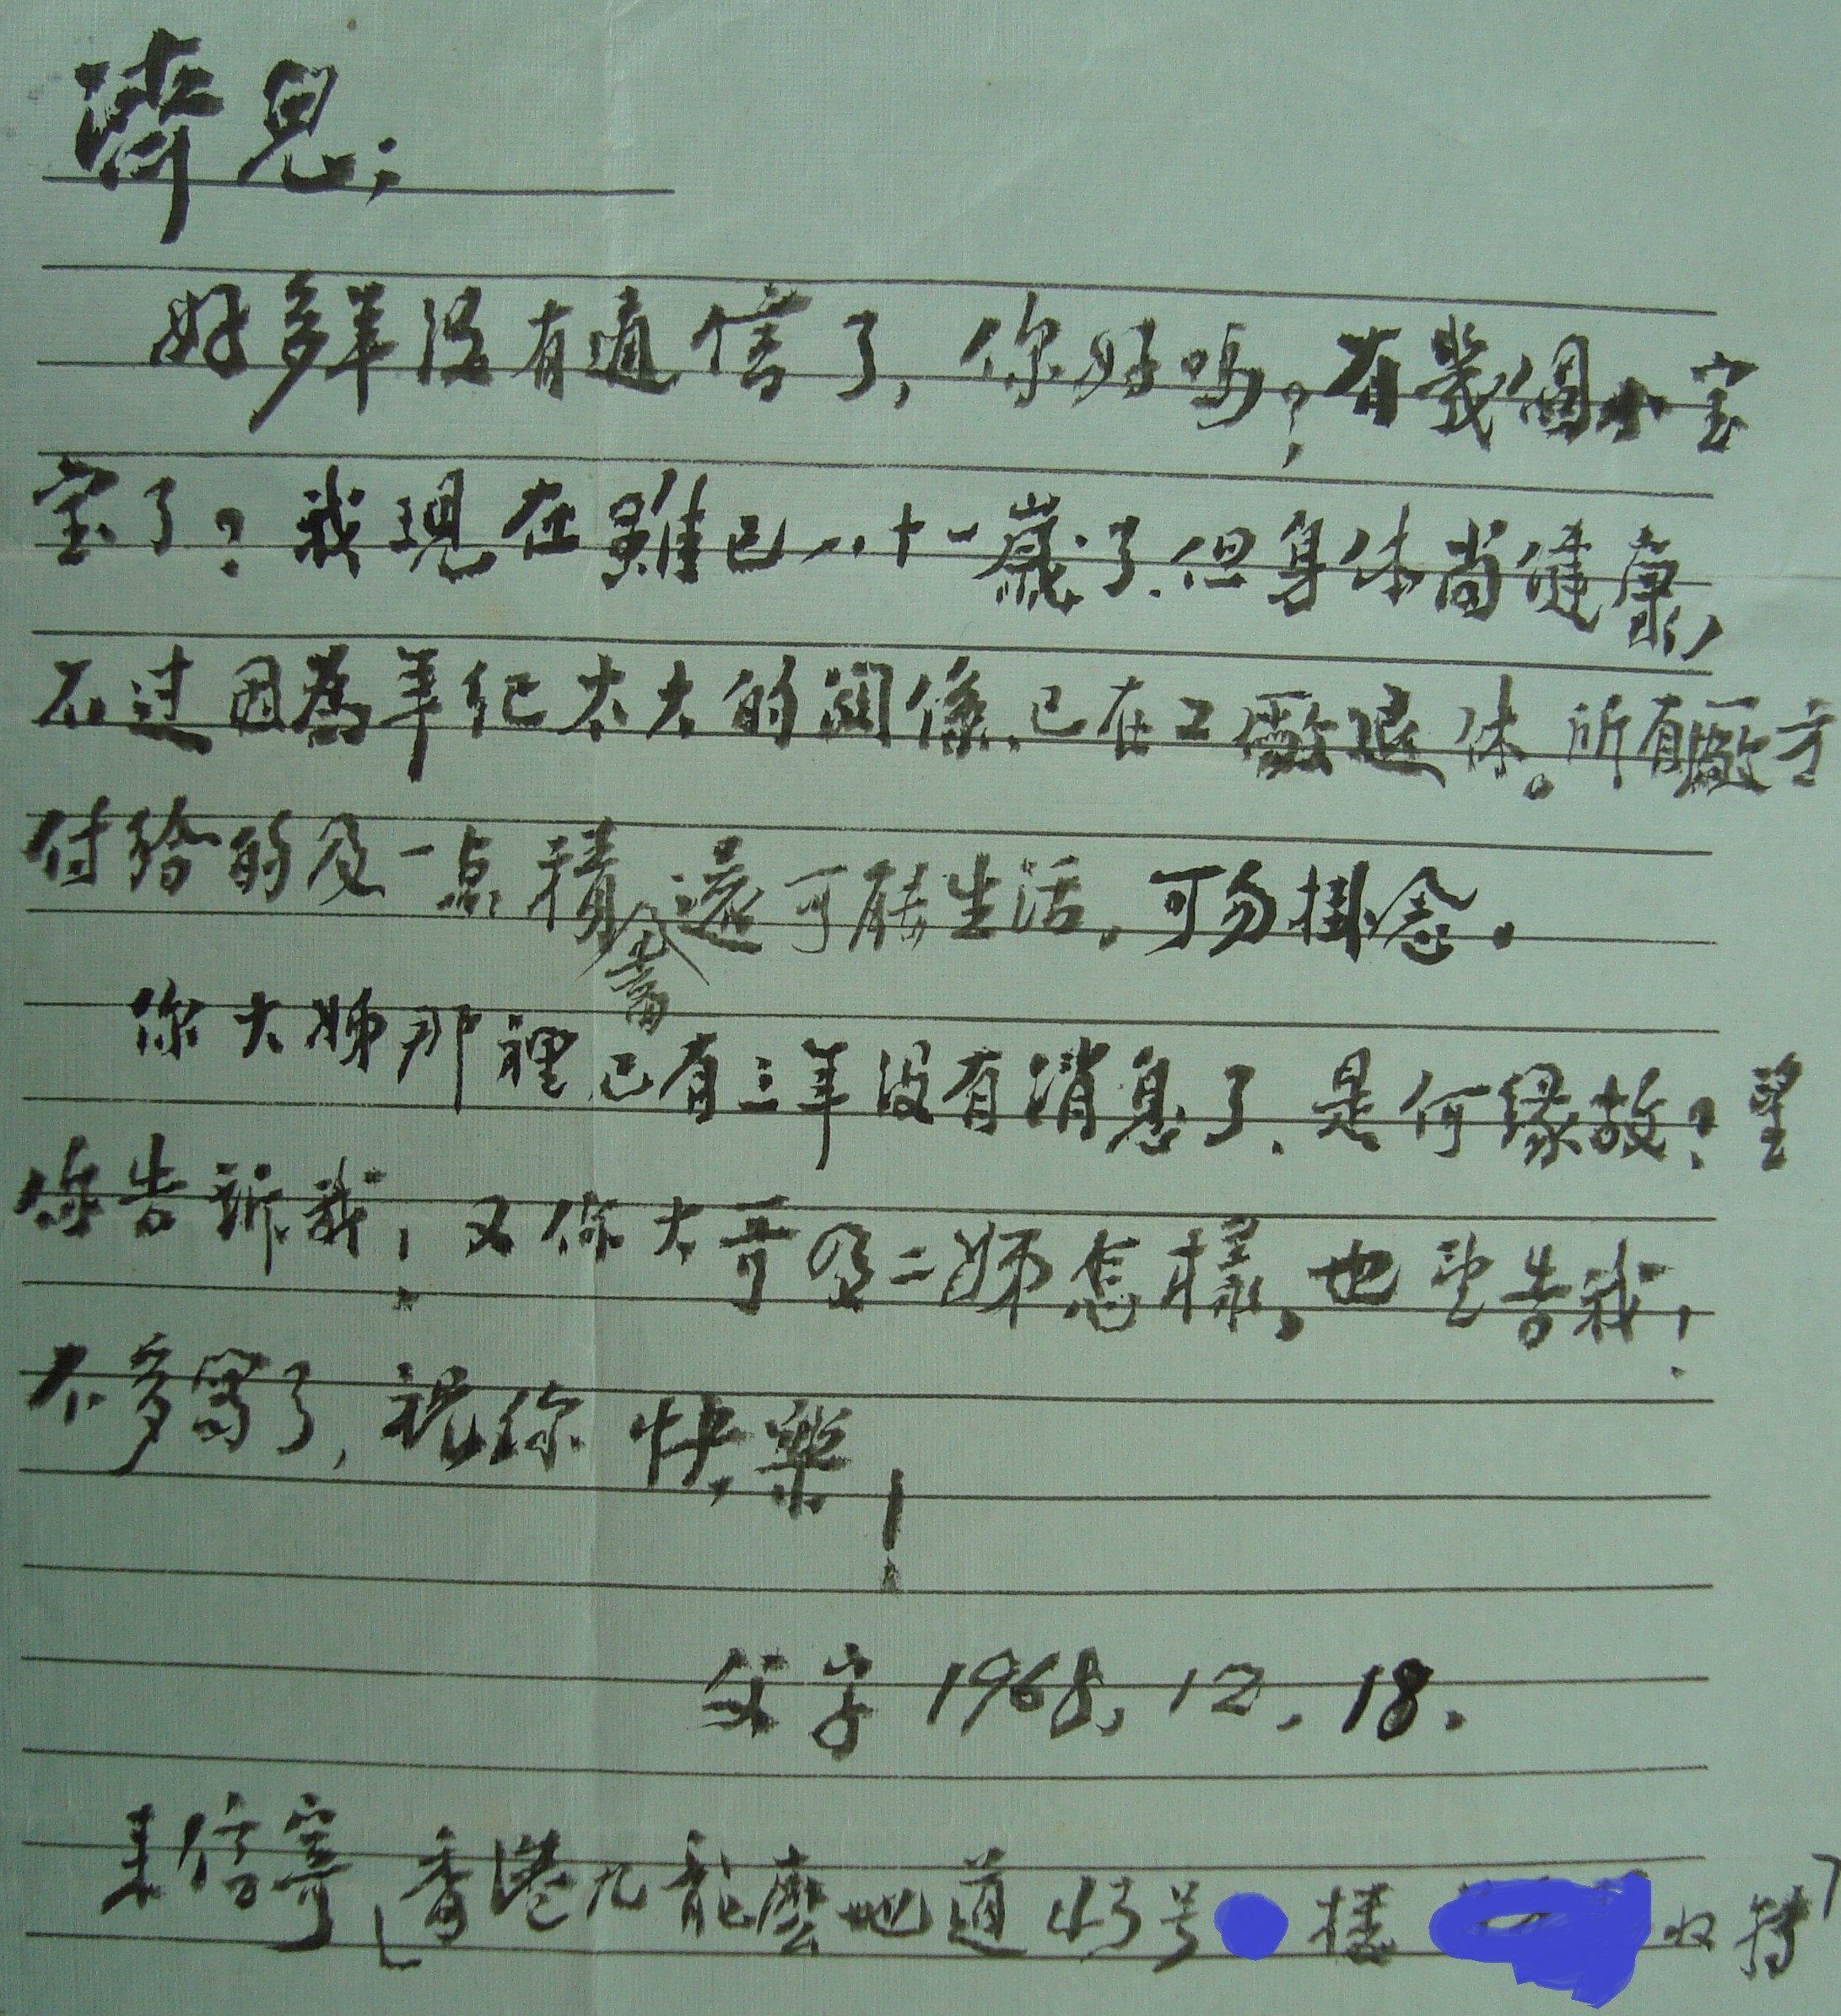 濟兒；
好多年沒有通信了，你好嗎？有幾個小宝
宝了？我現在雖已八十一歲了．但身体尚健康，
不过因為年纪太大的關係．已在工廠退休。所有廠方
付給的及一点積蓄還可能生活。可勿掛念。
你大姊那裡已有三年没有消息了．是何缘故？望
你告訴我！又你大哥及二姊怎樣，也望告我！
不多寫了，祝你 快樂！
父字 1968．12．18．
来信寄「香港九龍麼地道45号 楼 收轉」